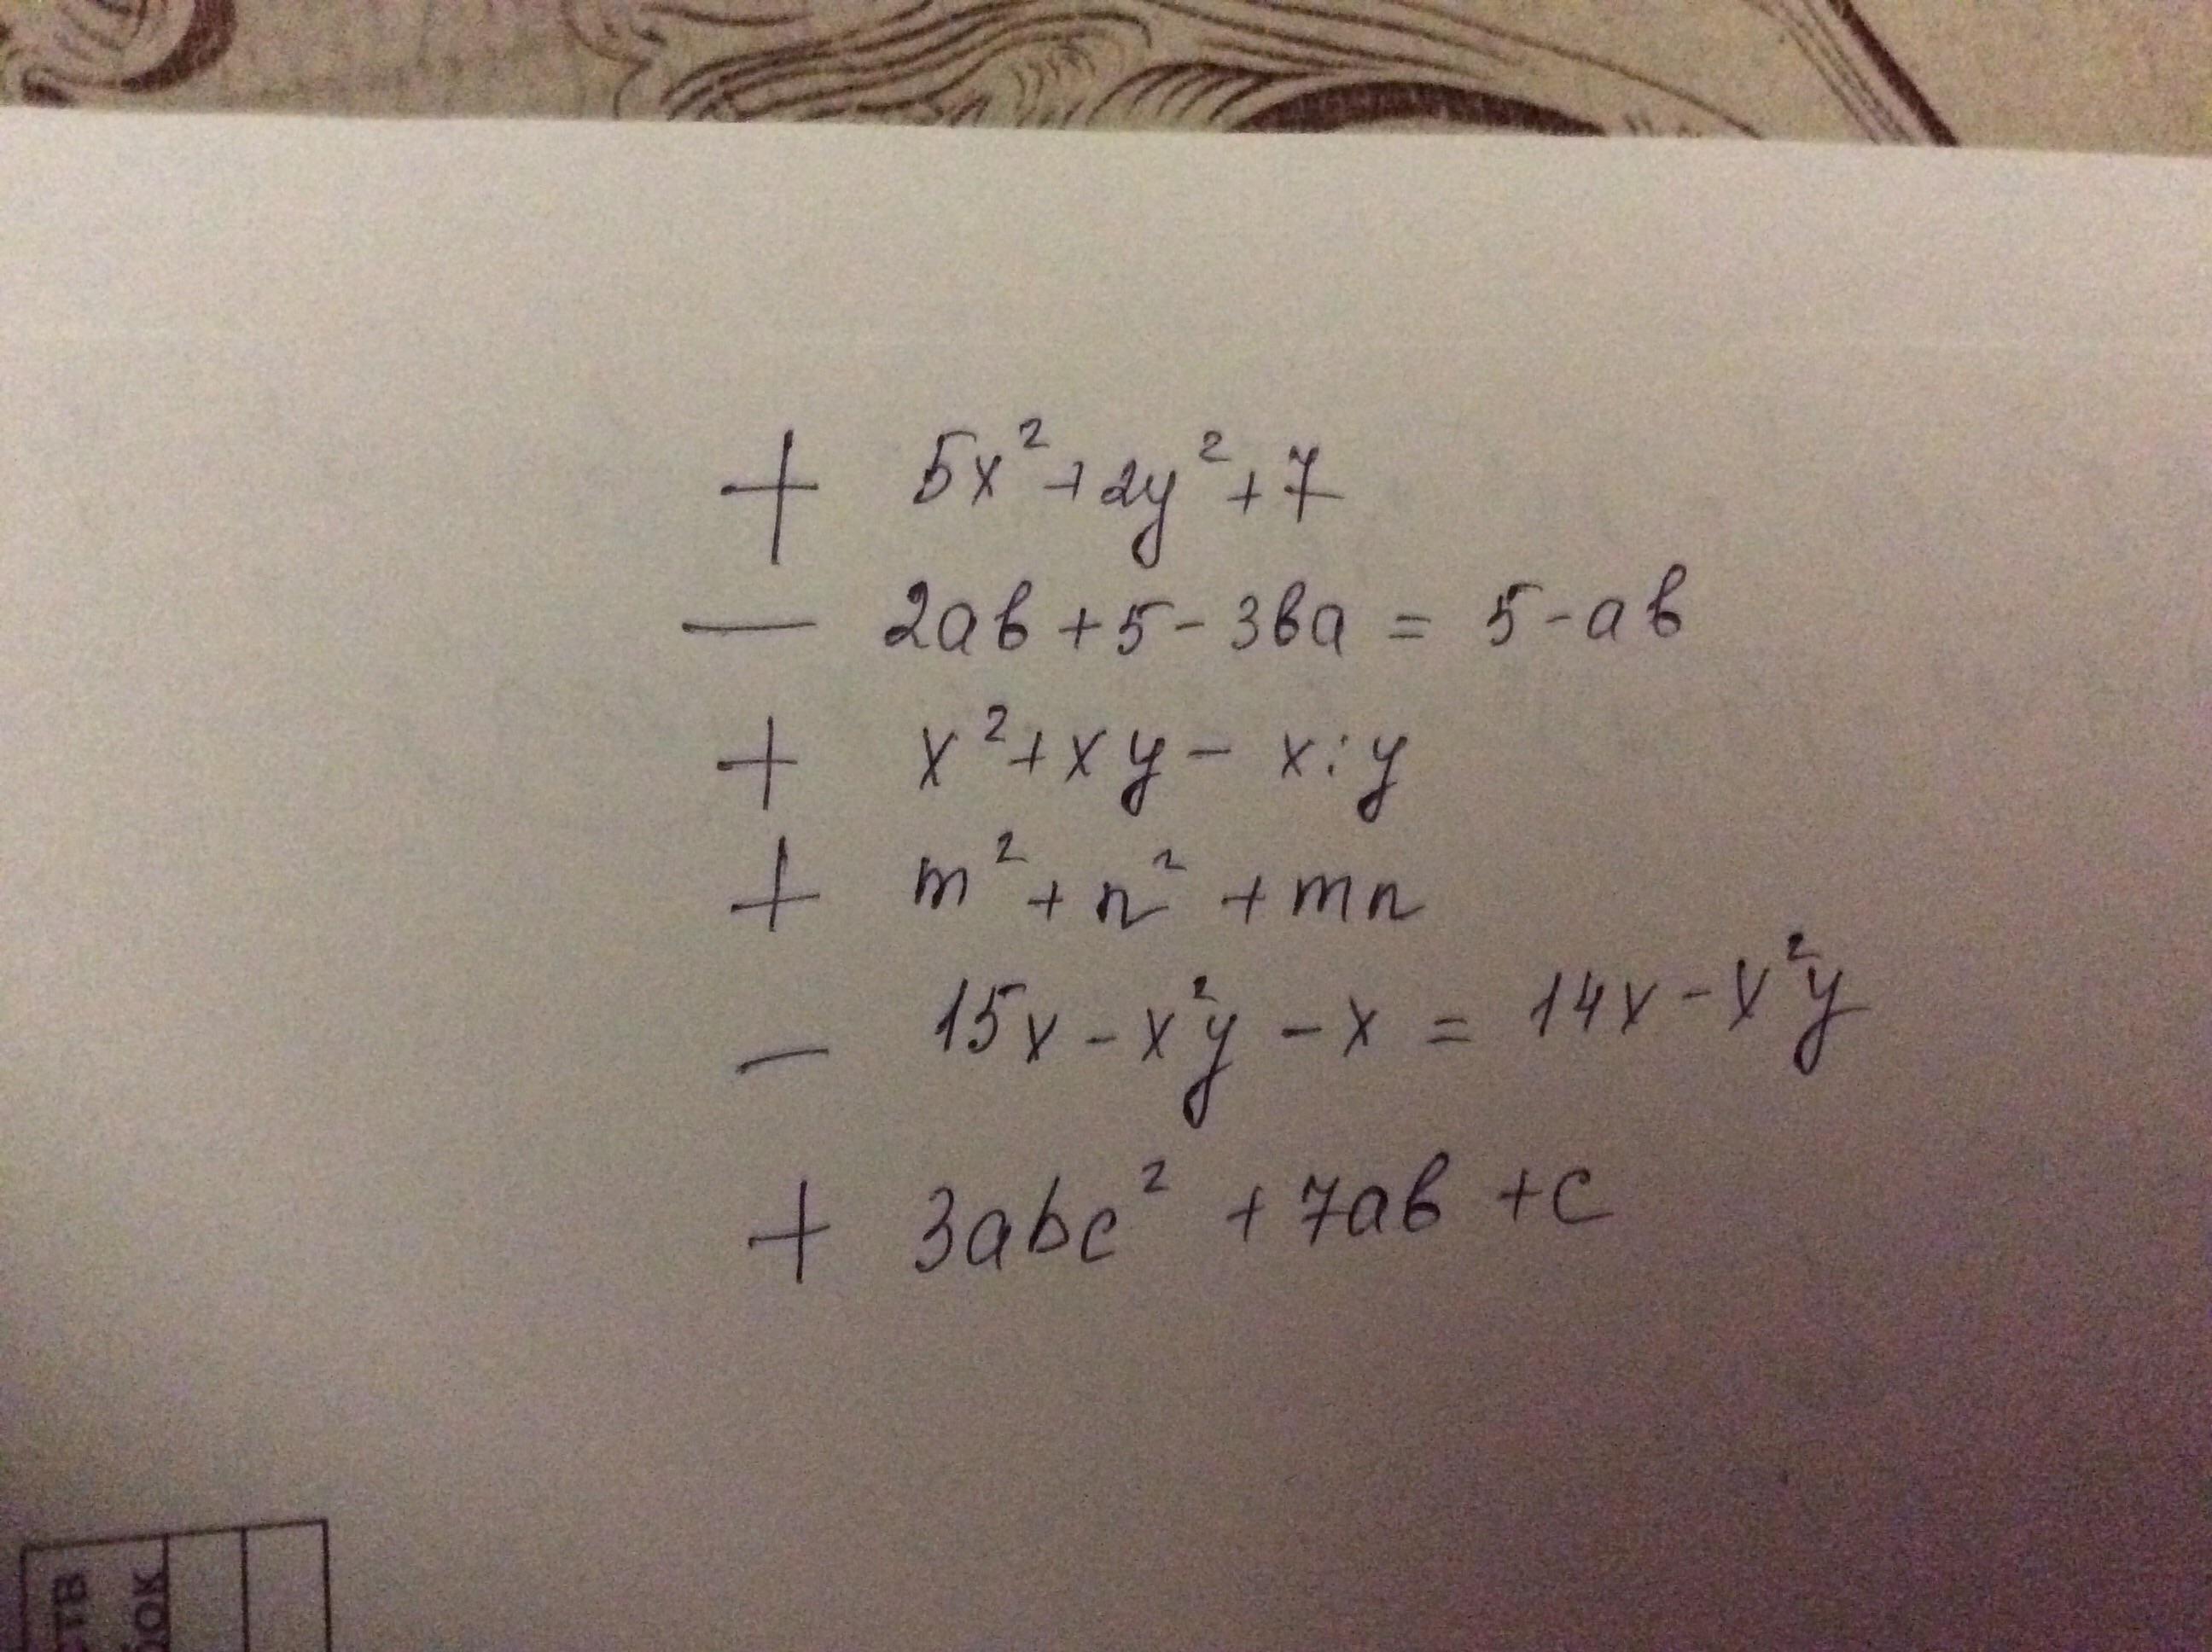 + 5x²+2y²+7
— 2ab+5-3ba = 5-ab
+ x²+xy- x:y
+ m²+n²+mn
- 15x-x²y-x = 14x-x²y
+ 3abc²+7ab+c